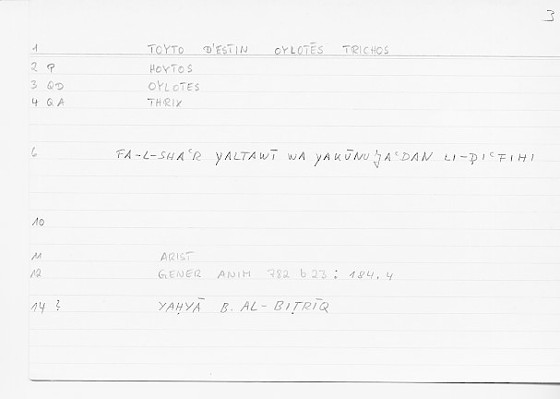 3
1 TOYTO D'ESTIN OYLOTĒS TRICHOS
2 P HOYTOS
3 QD OYLOTES
4 QA THRIX
6 FA-L-SHAᶜR YALTAWĪ WA YAKŪNU ǦAᶜDAN LI-ḌIᶜFIHI
10
11 ARIST
12 GENER ANIM 782 b 23 : 184.4
14 YAḤYĀ B. AL-BIṬRĪQ